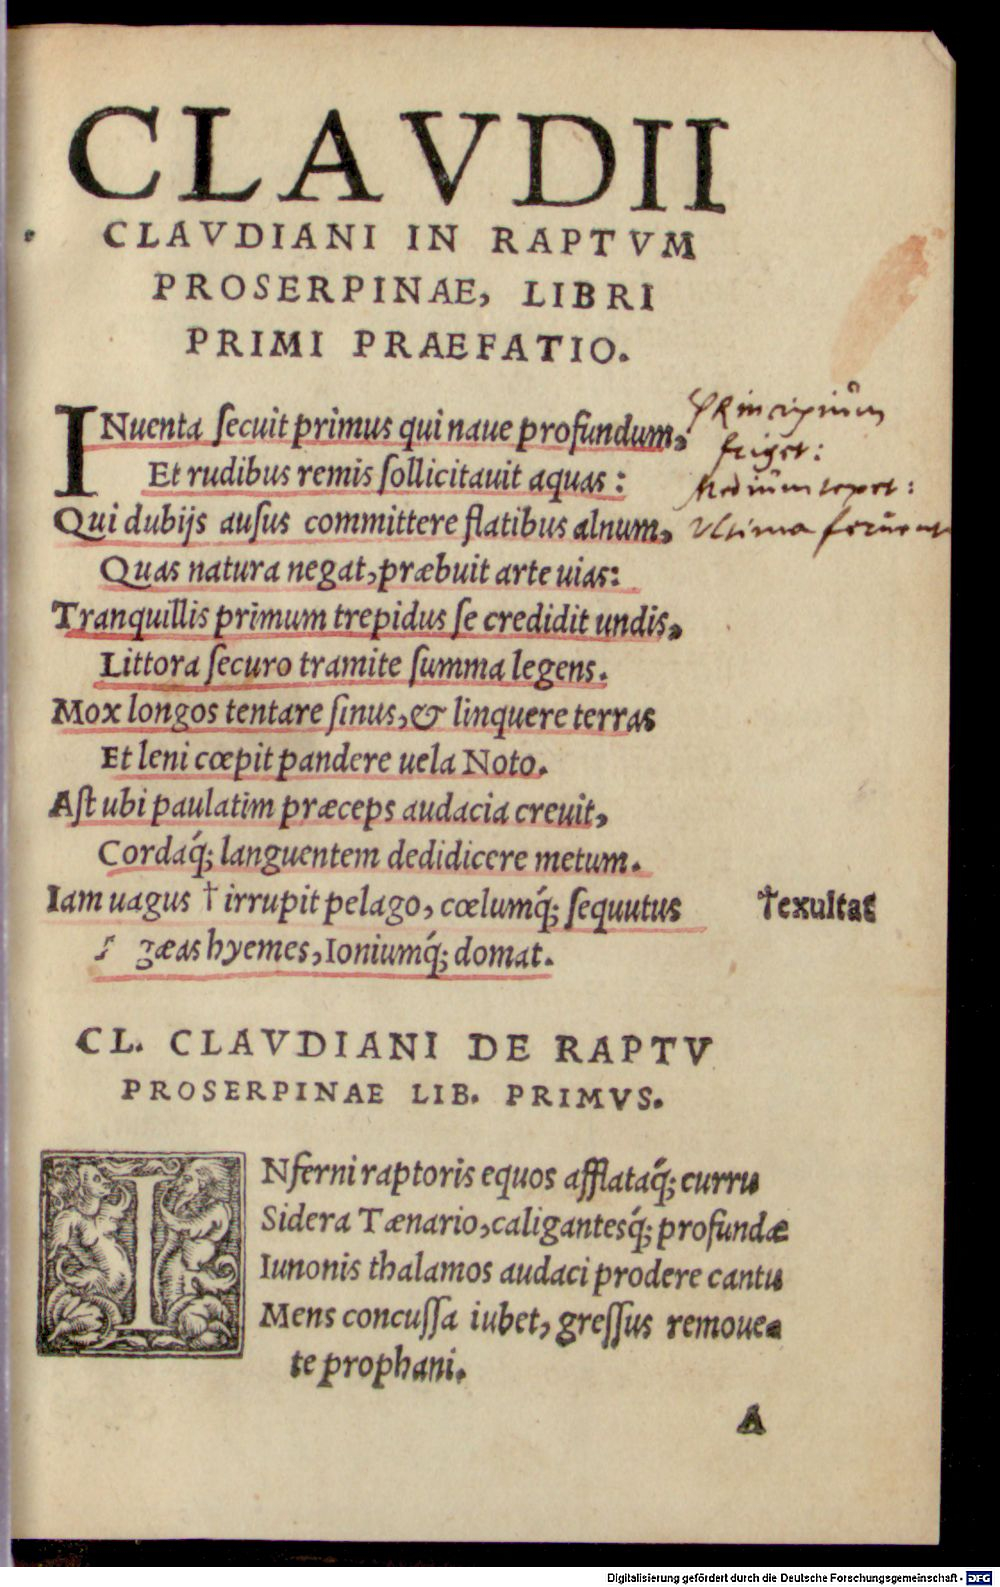 CLAVDII
CLAVDIANI IN RAPTVM
PROSERPINAE, LIBRI
PRIMI PRAEFATIO.
INuenta ſecuit primus qui naue profundum,
Et rudibus remis ſollicitauit aquas:
Qui dubijs auſus committere flatibus alnum,
Quas natura negat, præbuit arte uias:
Tranquillis primum trepidus ſe credidit undis,
Littora ſecuro tramite ſumma legens.
Mox longos tentare ſinus, & linquere terras
Et leni cœpit pandere uela Noto.
Aſt ubi paulatim præceps audacia creuit,
Cordaq́; languentem dedidicere metum.
Iam uagus † irrupit pelago, cœlumq́; ſequutus
gæas hyemes, Ioniumq́; domat.
Principium
friget:
Medium tepet:
Vltima
†exultat
CL. CLAVDIANI DE RAPTV
PROSERPINAE LIB. PRIMVS.
INferni raptoris equos afflataq́; curru
Sidera Tænario, caligantesq́; profundæ
Iunonis thalamos audaci prodere cantu
Mens concuſſa iubet, greſſus remoue-
te prophani.
A
Digitalisierung gefördert durch die Deutsche Forschungsgemeinschaft - DFG